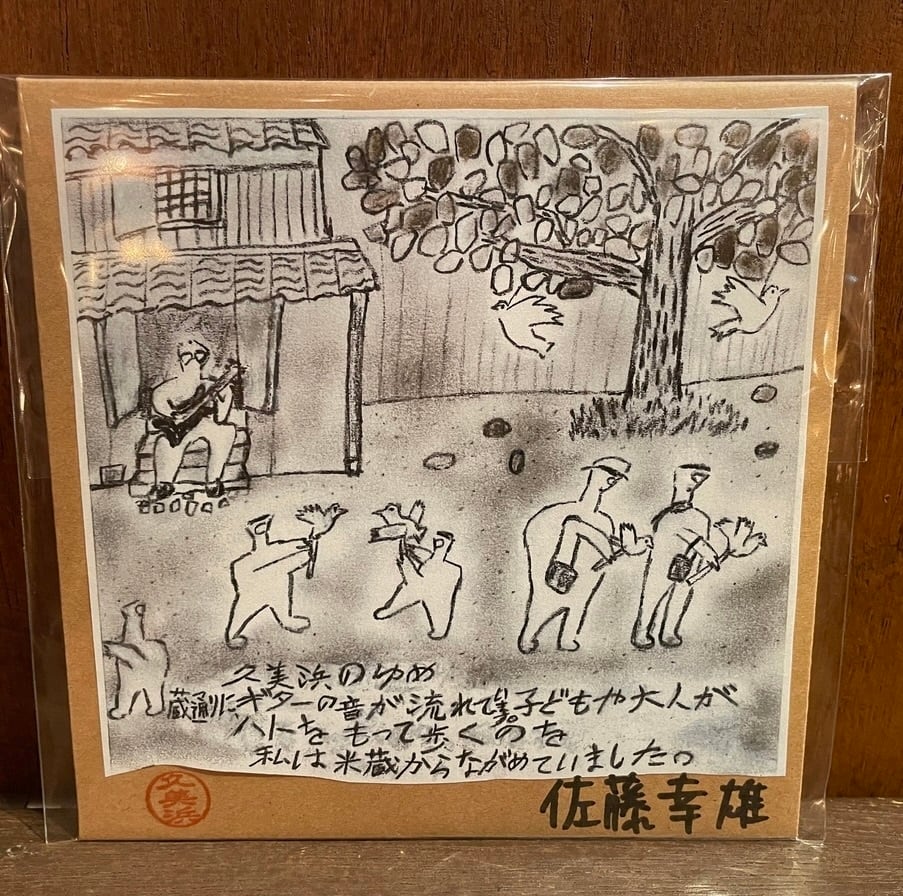 久美浜のゆめ
蔵通りにギターの音が流れて 子どもや大人が
ハトをもって歩くのを
私は米蔵からながめていました。
久美浜
佐藤幸雄